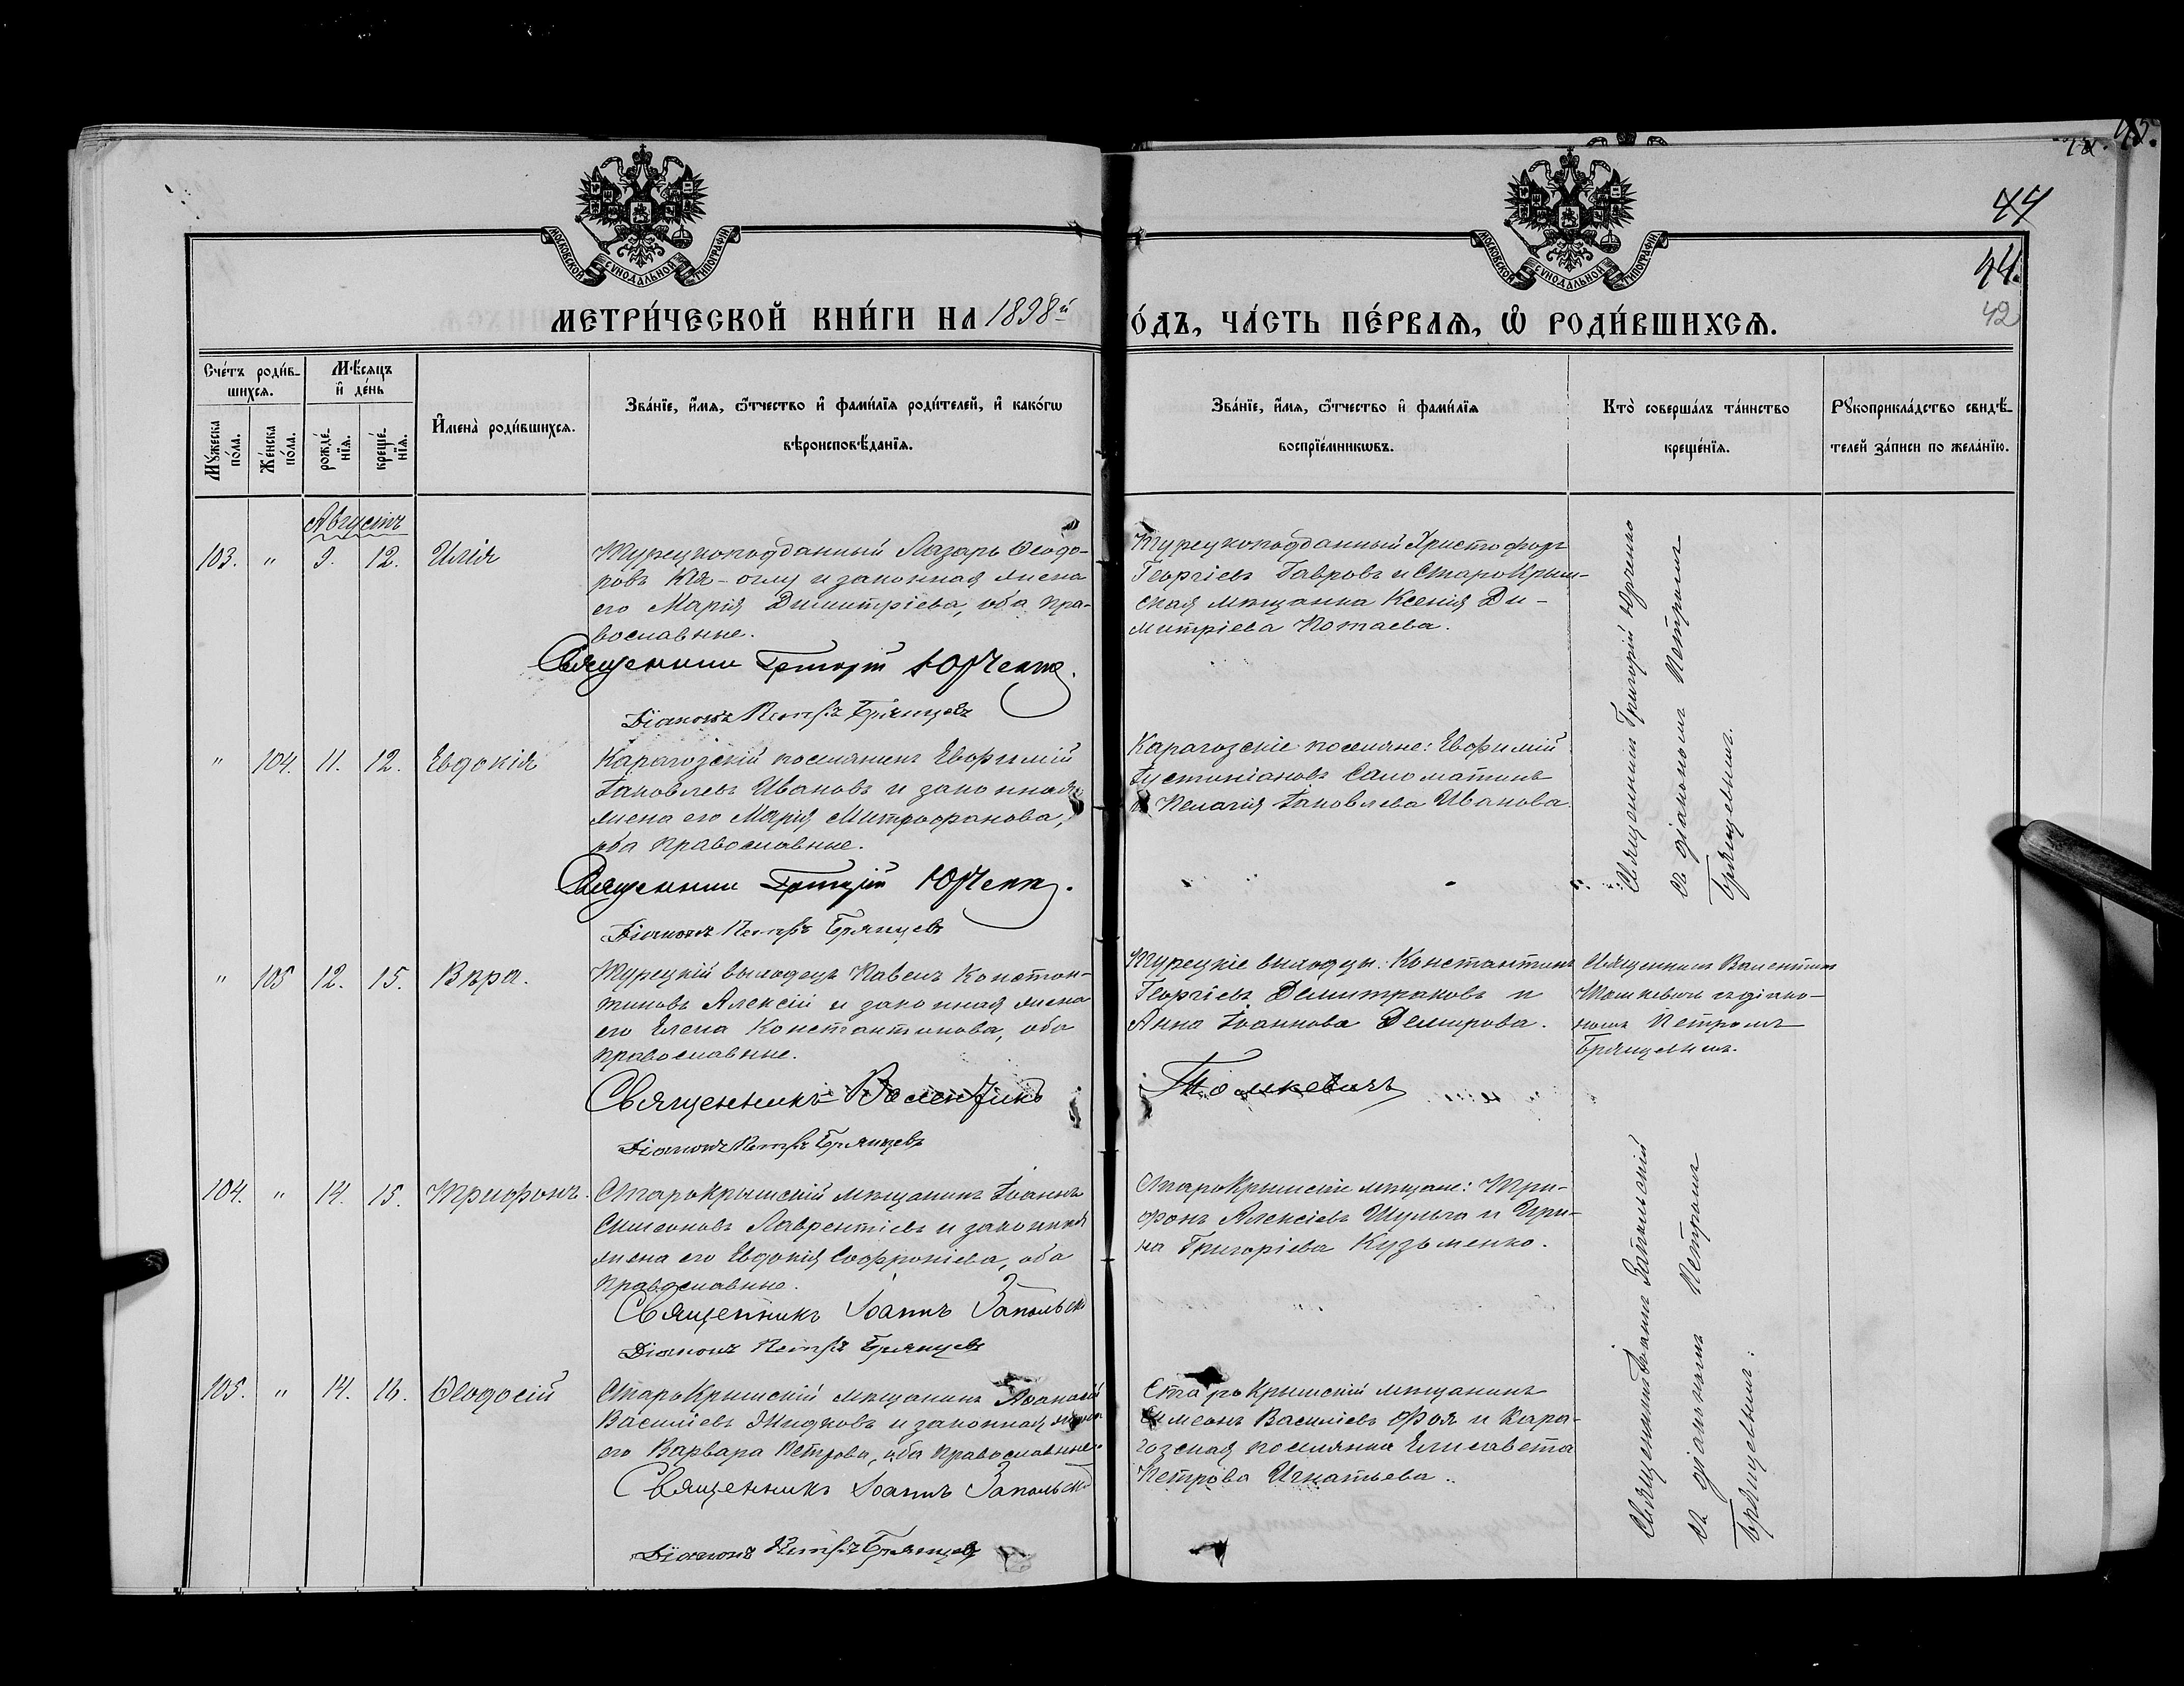 45.
44
44.
42
МОСКОВСКОЙ СѴНОДАЛЬНОЙ ТИПОГРАФІИ
МОСКОВСКОЙ СѴНОДАЛЬНОЙ ТИПОГРАФІИ
МЕТРИ́ЧЕСКОЙ КНИ́ГИ НА 1898й
О́ДЪ, ЧА́СТЬ ПЕ́РВАѦ, Ѡ҆ РОДИ́ВШИХСѦ.
Сче́тъ роди́в-
шихсѧ.
Мѣ́сѧцъ
и҆ де́нь
Мꙋ́жеска
по́ла.
Же́нска
по́ла.
рожде́-
нїѧ.
креще́-
нїѧ.
И҆мена̀ роди́вшихсѧ.
Зва́нїе, и҆́мѧ, ѻ҆́тчество и҆ фами́лїѧ роди́телей, и҆ како́гѡ
вѣроисповѣ́данїѧ.
Зва́нїе, и҆́мѧ, ѻ҆́тчество и҆ фами́лїѧ
воспрїе́мникѡвъ.
Кто̀ соверша́лъ та́инство
креще́нїѧ.
Рꙋкоприкла́дство свидѣ́-
телей за́писи по жела́нїю.
Августъ
103. " 9. 12. Илія
Турецкоподданный Лазарь Ѳеодо-
ровъ Кія-оглу и законная жена
его Марія Димитріева, оба пра-
вославные.
Священник Григорій Юрченко.
Діаконъ Петръ Брянцевъ
Турецкоподданный Христофоръ
Георгіевъ Гавровъ и СтароКрым-
ская мѣщанка Ксенія Ди-
митріева Потаева.
Священникъ Григорій Юрченко
съ діакономъ Петромъ
Брянцевымъ.
" 104. 11. 12. Евдокія
Карагозскій поселянинъ Евфимій
Іаковлевъ Ивановъ и законная
жена его Марія Митрофанова,
оба православные.
Священник Григорій Юрченко.
Діаконъ Петръ Брянцевъ
Карагозскіе поселяне: Евфимій
Іустиніановъ Саломатинъ
и Пелагія Іаковлева Иванова.
" 105 12. 15. Вѣра.
Турецкій выходецъ Павелъ Констан-
тиновъ Алексій и законная жена
его Елена Константинова, оба
православные.
Священникъ Валентинъ
Томкевичъ
Діаконъ Петръ Брянцевъ
Турецкіе выходцы: Константинъ
Георгіевъ Демитраковъ и
Анна Іоаннова Демирова.
Священникъ Валентинъ
Томкевичъ съ діако-
номъ Петромъ
Брянцевымъ.
104. " 14. 15. Трифонъ.
СтароКрымскій мѣщанинъ Іоаннъ
Симеоновъ Лаврентіевъ и законная
жена его Евдокія Софроніева, оба
православные.
Священникъ Іоаннъ Запольск
Діаконъ Петръ Брянцевъ
СтароКрымскіе мѣщане: Три-
фонъ Алексіевъ Шульга и Ири-
на Григоріева Кузьменко.
Священникъ Іоаннъ Запольскій
съ діакономъ Петромъ
Брянцевымъ.
105. " 14. 16. Ѳеодосій
СтароКрымскій мѣщанинъ
Василіевъ Жидковъ и законная жена
его Варвара Петрова, оба православные.
Священникъ Іоаннъ Запольск
Діаконъ Петръ Брянцевъ
СтароКрымскій мѣщанинъ
Симеонъ Василіевъ и Кара-
гозская поселянка Елисавета
Петрова Игнатьева.